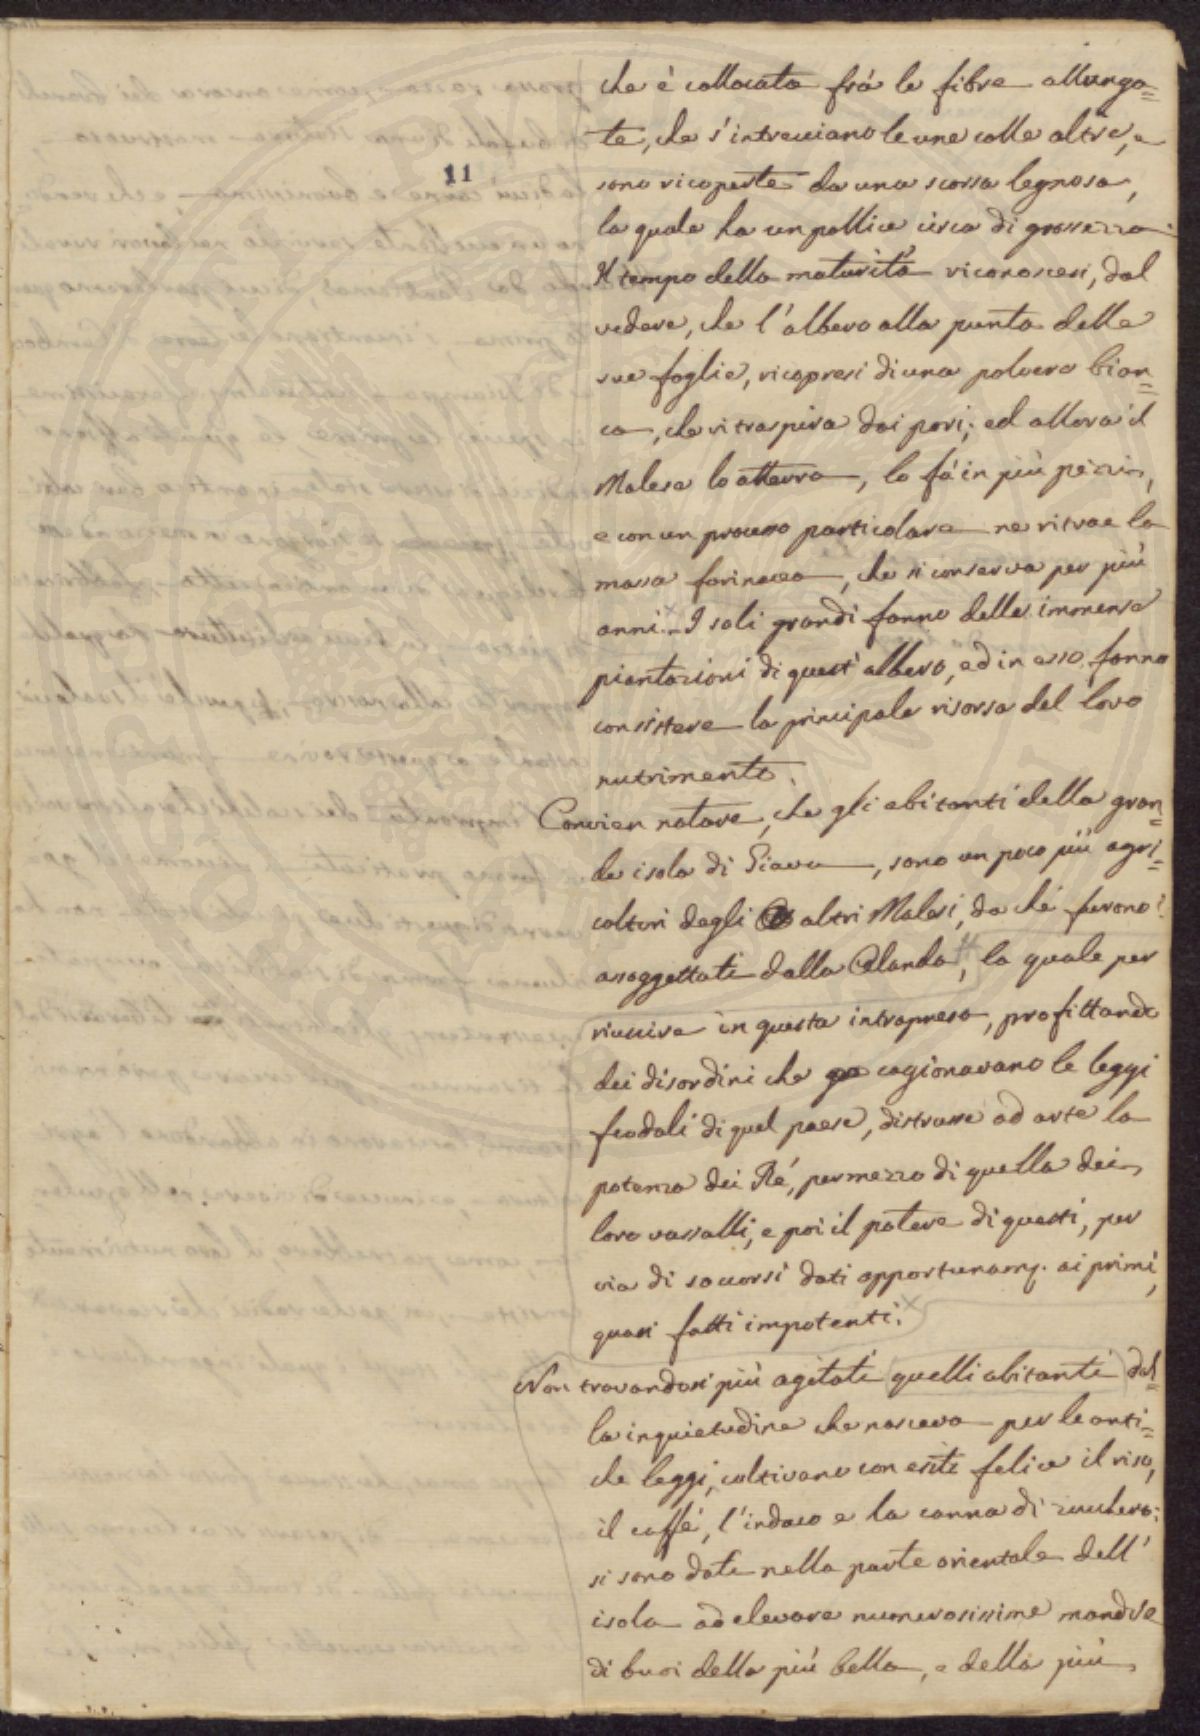 che è collocata frà le fibre allunga=
te, che s'intrecciano le une colle altre, e
11
sono ricoperte da una scorza legnosa,
la quale ha un pollice circa di grossezza.
Il tempo della maturità riconoscesi, dal
vedere, che l'albero alla punta delle
sue foglie, ricopresi di una polvere bian=
ca, che vi traspira dai pori; ed allora il
Malese lo atterra, lo fà in più pezzi,
e con un processo particolare ne ritrae la
massa farinacea, che si conserva per più
anni. I soli grandi fanno delle immense
piantazioni di quest'albero, ed in esso fanno
consistere la principale risorsa del loro
nutrimento.
Convien notare, che gli abitanti della gran=
de isola di Giava, sono un poco più agri=
coltori degli altri Malesi, da che furono
assoggettati dalla Olanda, la quale per
riuscire in questa intrapresa, profittando
dei disordini che cagionavano le leggi
feodali di quel paese, distrusse ad arte la
potenza dei Rè, per mezzo di quella dei
loro vassalli, e poi il potere di questi, per
via di soccorsi dati opportunamẽ. ai primi,
quasi fatti impotenti.
Non trovandosi più agitati quelli abitanti dal=
la inquietudine che nasceva per le anti=
che leggi, coltivano con esito felice il riso,
il caffè, l'indaco e la canna di zucchero:
si sono dati nella parte orientale dell'
isola ad elevare numerosissime mandre
di buoi della più bella, e della più